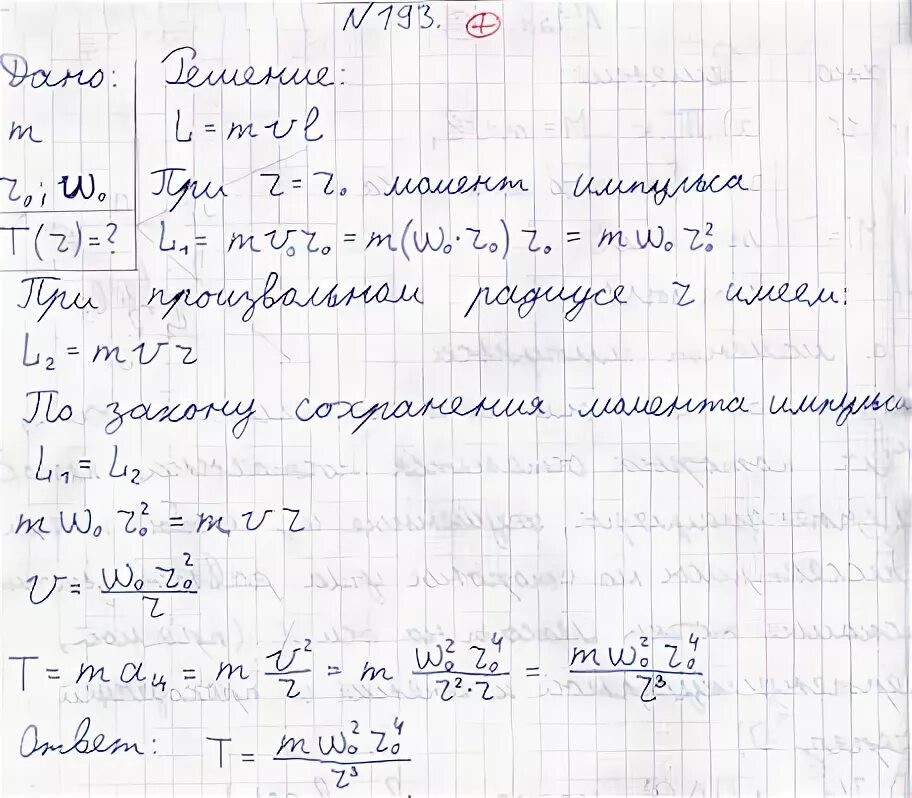 N 193. +
Дано: Решение:
m L = m v l
r₀; ω₀ При r = r₀ момент импульса
T(r) = ? L₁ = m v₀ r₀ = m(ω₀·r₀) r₀ = m ω₀ r₀²
При произвольном радиусе r имеем:
L₂ = m v r
По закону сохранения момента импульса
L₁ = L₂
m ω₀ r₀² = m v r
v = ω₀ r₀² / r
T = m aц = m v²/r = m ω₀² r₀⁴ / r²·r = m ω₀² r₀⁴ / r³
Ответ: T = m ω₀² r₀⁴ / r³